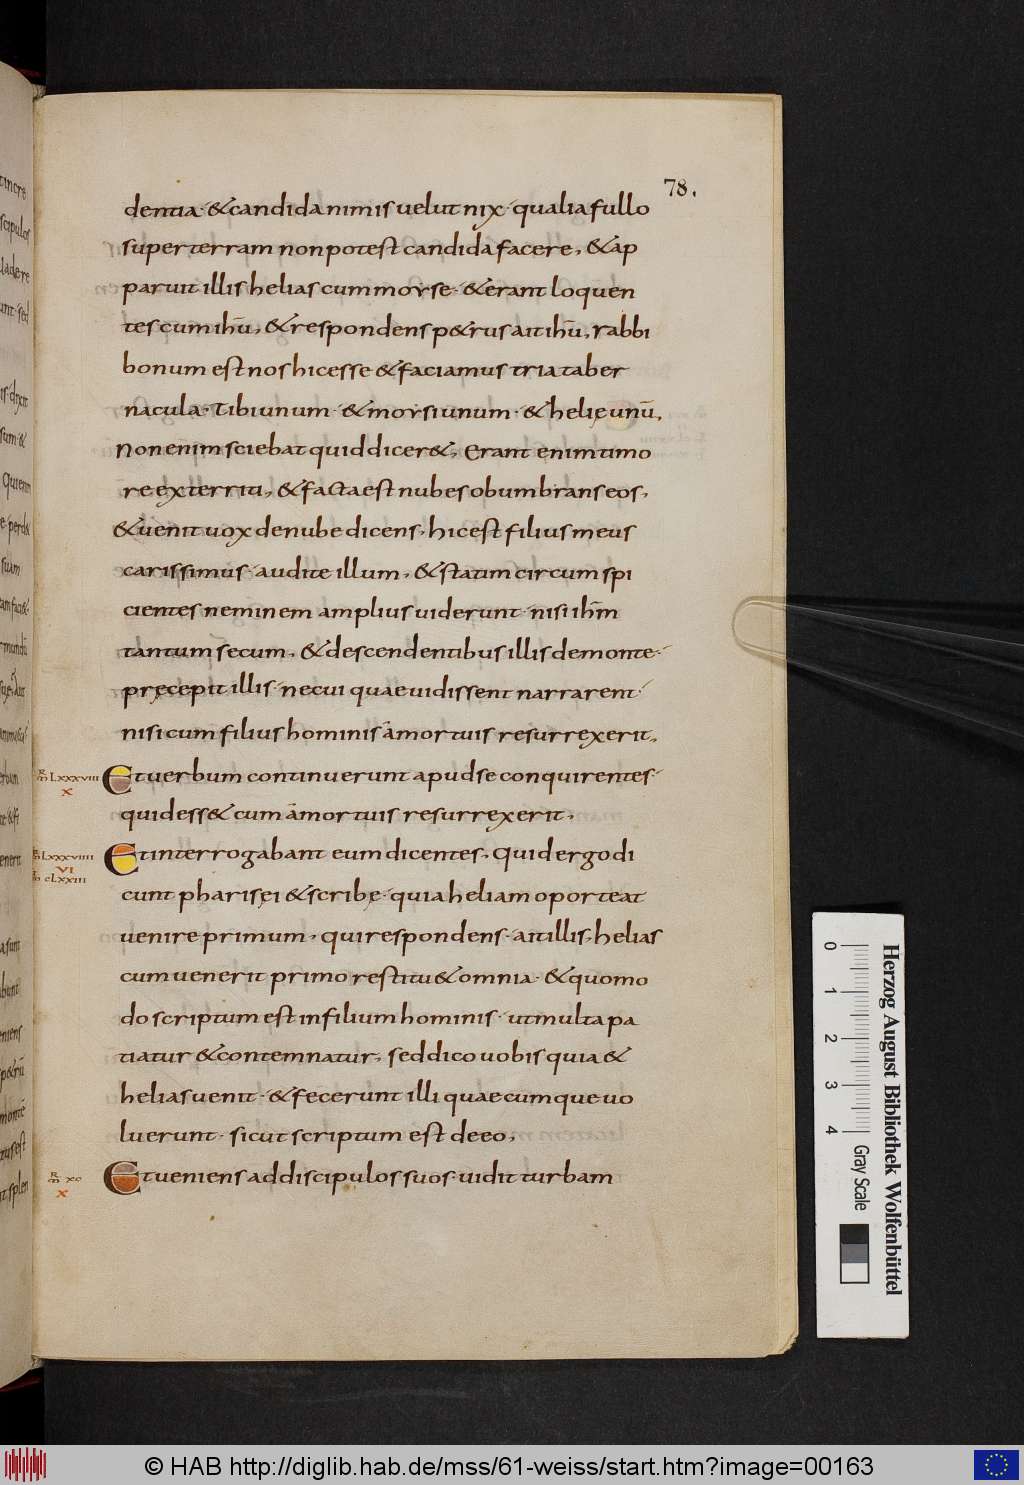 78.
dentia · & candida nimis uelut nix · qualia fullo
super terram non potest candida facere, & ap
paruit illis helias cum morse · & erant loquen
tes cum ihū, & respondens p&rus ait ihū, rabbi
bonum est nos hic esse & faciamus tria taber
nacula · Tibi unum · & morsi unum · & helię unū,
Non enim sciebat quid dicer&, Erant enim timo
re exterriti, & facta est nubes obumbrans eos,
& uenit uox de nube dicens, hic est filius meus
carissimus · audite illum, & statim circumspi
cientes neminem amplius uiderunt · nisi ihm̄
tantum secum, & descendentibus illis de monte ·
pręcepit illis · ne cui quae uidissent narrarent ·
nisi cum filius hominis á mortuis resurrexerit,
Et uerbum continuerunt apud se conquirentes ·
quid ess& cum á mortuis resurrexerit,
Et interrogabant eum dicentes, Quid ergo di
cunt pharisęi & scribę · quia heliam oporteat
uenire primum, qui respondens · ait illis, helias
cum uenerit primo restitu& omnia · & quomo
do scriptum est in filium hominis · ut multa pa
tiatur & contemnatur, sed dico uobis quia &
helias uenit · & fecerunt illi quaecumque uo
luerunt · sicut scriptum est de eo,
Et ueniens ad discipulos suos · uidit turbam
LXXXVIII
X
LXXXVIIII
VI
CLXXIII
XC
X
0 1 2 3 4 Gray Scale
Herzog August Bibliothek Wolfenbüttel
© HAB http://diglib.hab.de/mss/61-weiss/start.htm?image=00163